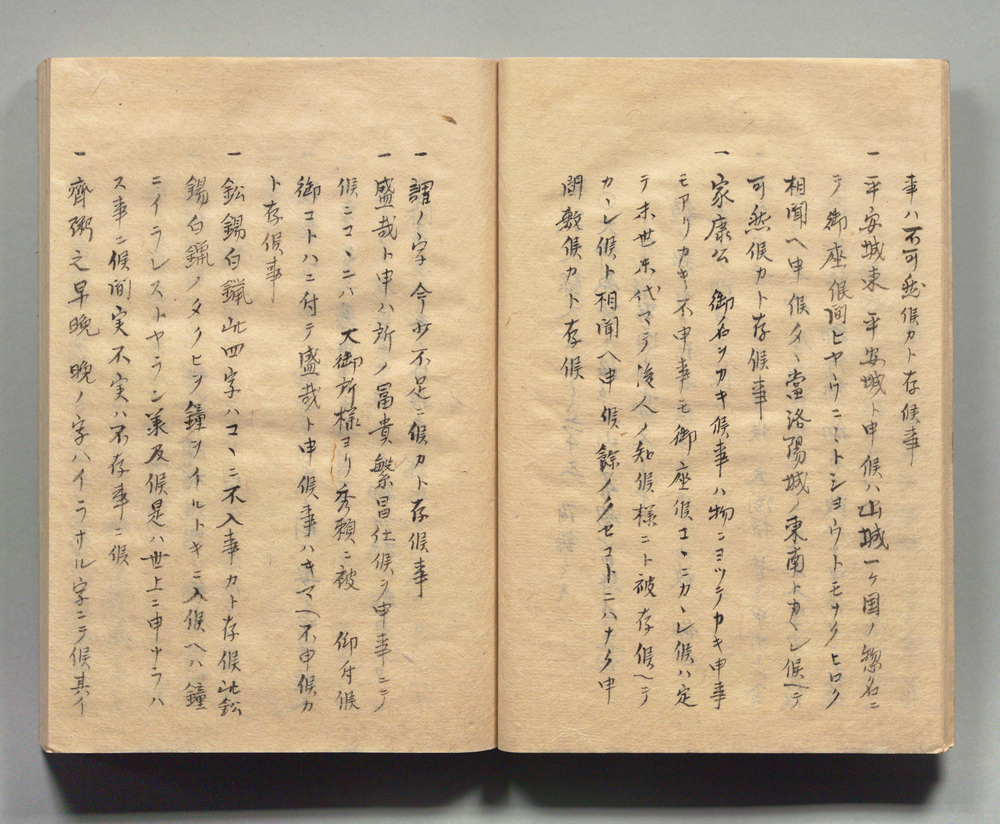 事ハ不可然候カト存候事
一 平安城東 平安城ト申候ハ山城一ケ国ノ惣名ニ
テ 御座候間ヒヤウニホトシヨウトモナクヒロク
相聞ヘ申候タヽ當洛陽城ノ東南トカヽレ候ヘテ
可然候カト存候事
一 家康公 御名ヲカキ候事ハ物ニヨツテカキ申事
モアリカキ不申事モ御座候コヽニカヽレ候ハ定
テ末世末代マテ後人ノ知候様ニト被存候ヘテ
カヽレ候ト相聞ヘ申候餘ノクセコトニハナク申
間敷候カト存候
一 謂ノ字 今少不足ニ候カト存候事
一 盛哉ト申ハ所ノ冨貴繁昌仕候ヲ申事ニテ
候ニコヽニハ 大御所様ヨリ秀頼ニ被 仰付候
御コトハニ付テ盛哉ト申候事ハキマヘ不申候カ
ト存候事
一 鈆錫白鑞此四字ハコヽニ不入事カト存候此鈆
錫白鑞ノタクヒヲ鐘ヲイルトキニ入候ヘハ鐘
ニイラレストヤラン兼及候是ハ世上ニ申ナラハ
ス事ニ候間実不実ハ不存事ニ候
一 齊粥之早晩 晩ノ字ハイラサル字ニテ候其イ